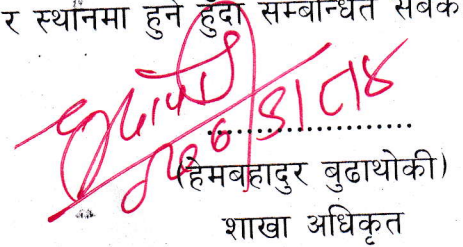 र स्थानमा हुने हुँदा सम्बन्धित सबैक
(हेमबहादुर बुढाथोकी)
शाखा अधिकृत